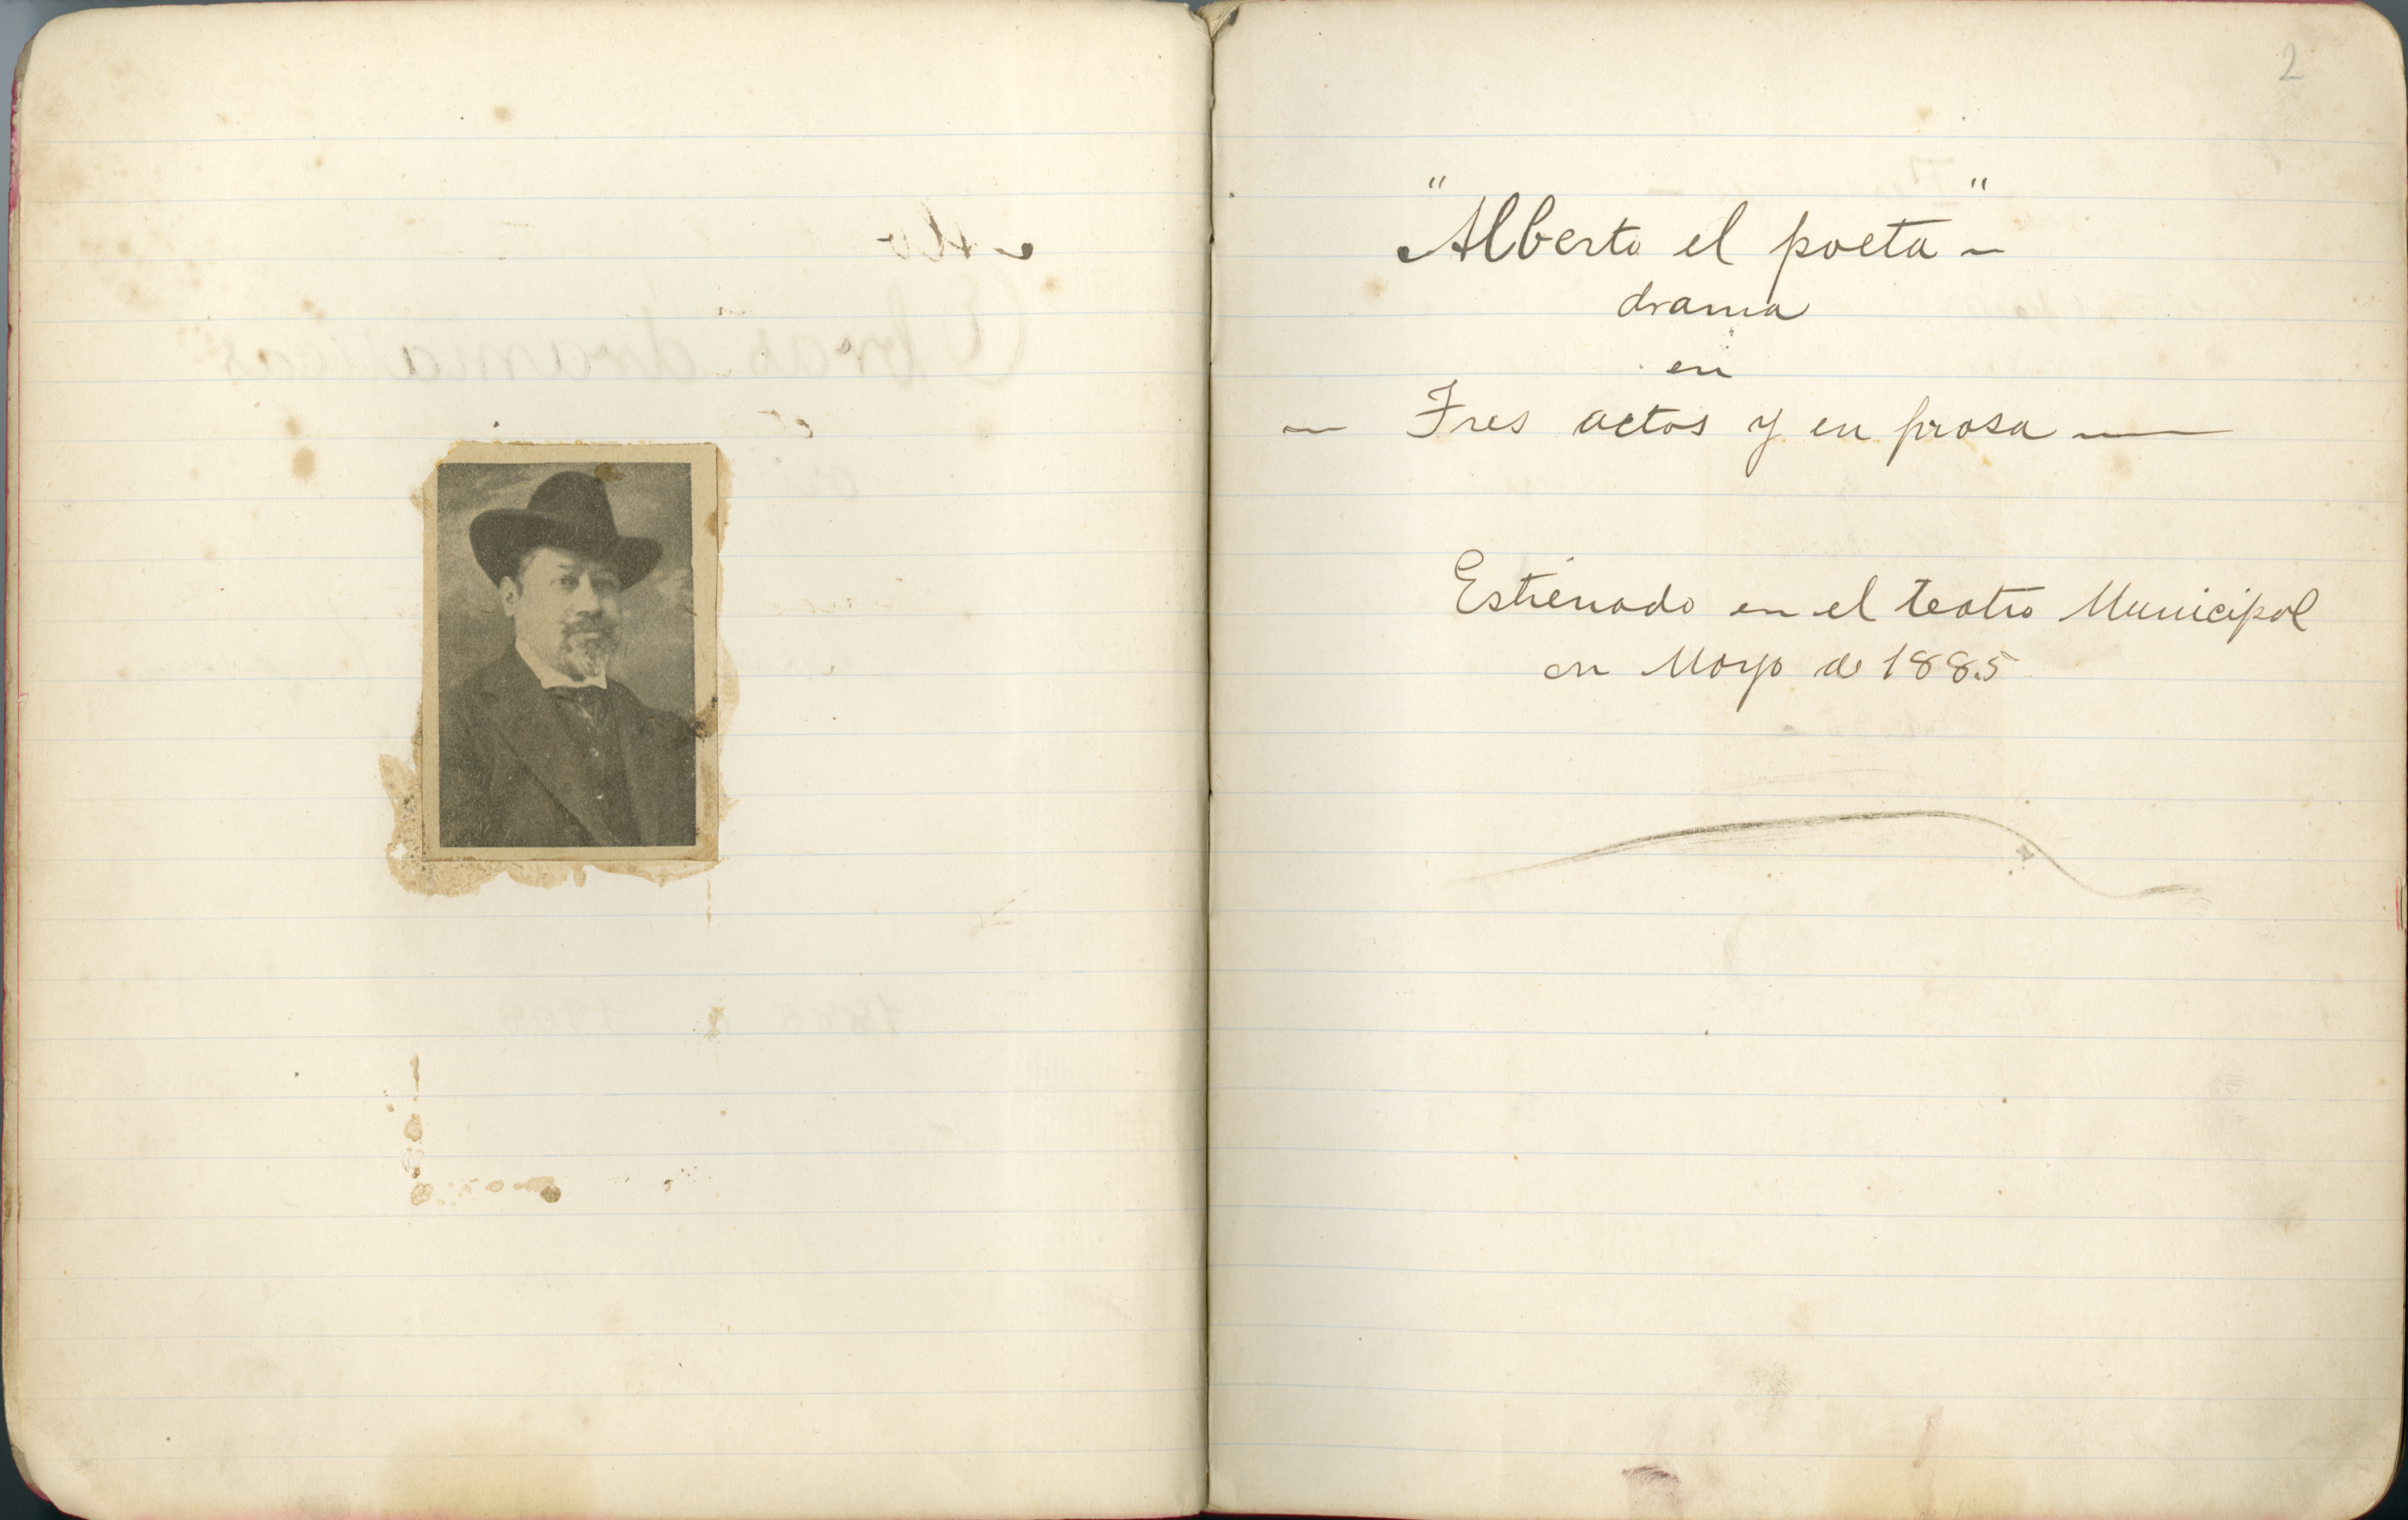 Obras dramaticas
2
"Alberto el poeta"
drama
en
Tres actos y en prosa
Estrenado en el teatro Municipal
en Mayo de 1885